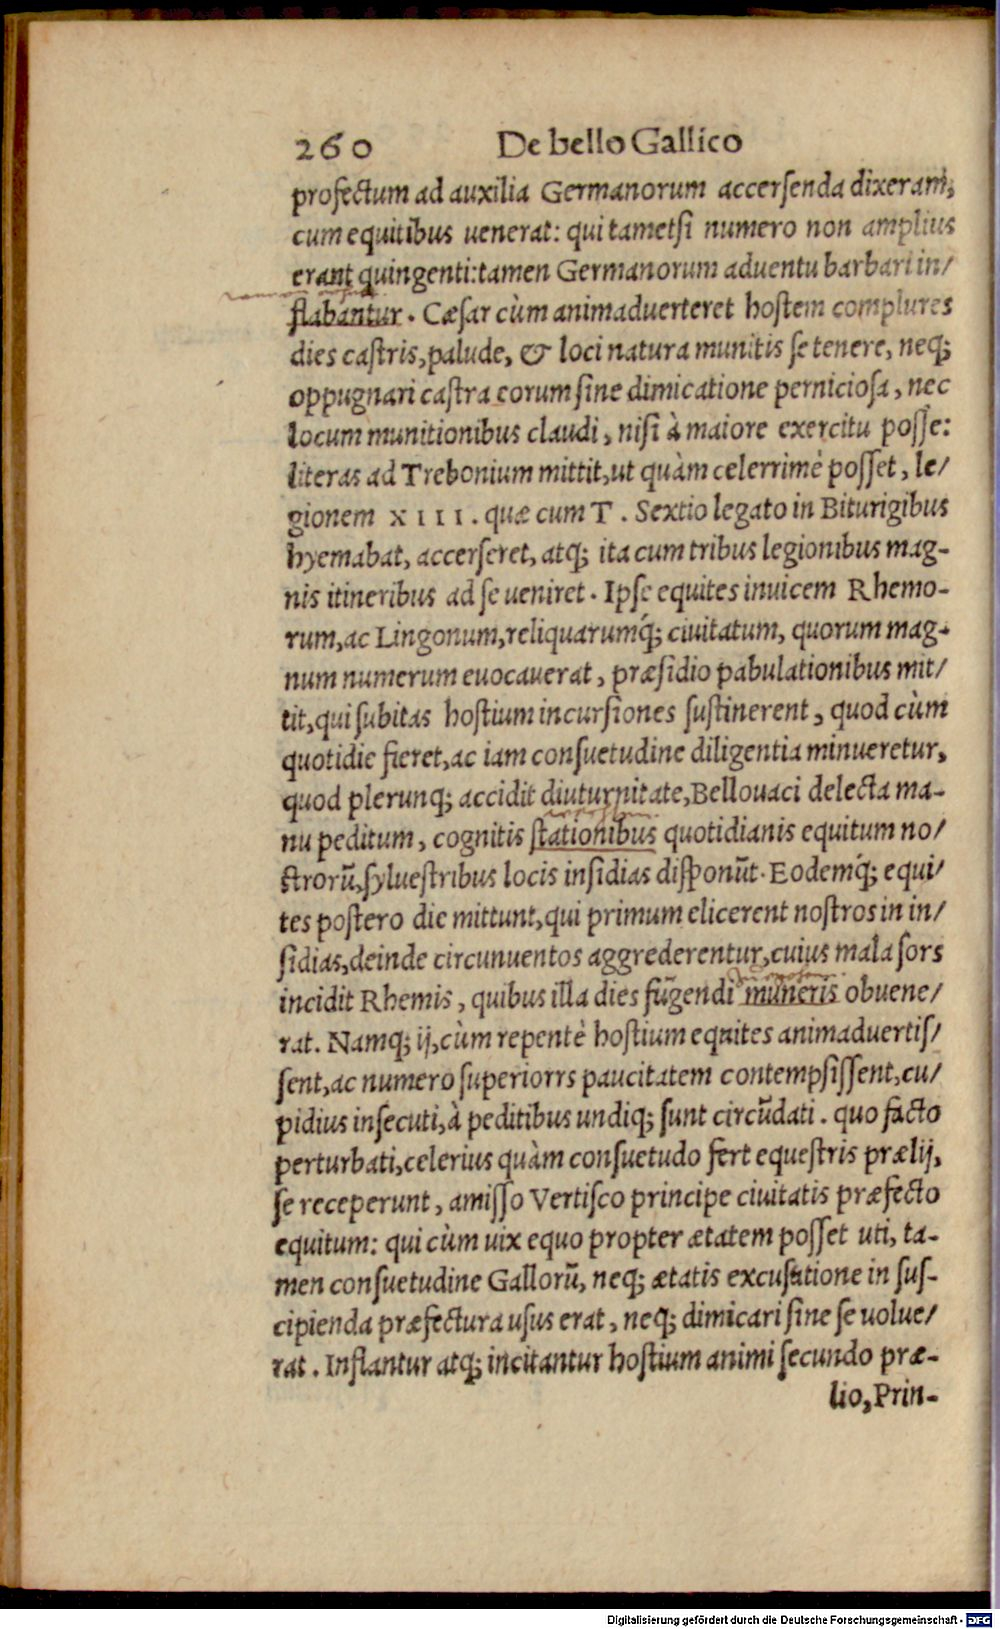 260 De bello Gallico
profectum ad auxilia Germanorum accersenda dixeram,
cum equitibus uenerat: qui tametsi numero non amplius
erant quingenti: tamen Germanorum aduentu barbari in/
flabantur. Cæsar cùm animaduerteret hostem complures
dies castris, palude, & loci natura munitis se tenere, neq;
oppugnari castra eorum sine dimicatione perniciosa, nec
locum munitionibus claudi, nisi à maiore exercitu posse:
literas ad Trebonium mittit, ut quàm celerrimè posset, le/
gionem XIII. quæ cum T. Sextio legato in Biturigibus
hyemabat, accerseret, atq; ita cum tribus legionibus mag-
nis itineribus ad se ueniret. Ipse equites inuicem Rhemo-
rum, ac Lingonum, reliquarumq́; ciuitatum, quorum mag-
num numerum euocauerat, præsidio pabulationibus mit/
tit, qui subitas hostium incursiones sustinerent, quod cùm
quotidie fieret, ac iam consuetudine diligentia minueretur,
quod plerunq; accidit diuturnitate, Bellouaci delecta ma-
nu peditum, cognitis stationibus quotidianis equitum no/
strorũ, syluestribus locis insidias disponũt. Eodemq́; equi/
tes postero die mittunt, qui primum elicerent nostros in in/
sidias, deinde circunuentos aggrederentur, cuius mala sors
incidit Rhemis, quibus illa dies fũgendi muneris obuene/
rat. Namq; ij, cùm repentè hostium equites animaduertis/
sent, ac numero superiorrs paucitatem contempsissent, cu/
pidius insecuti, à peditibus undiq; sunt circũdati. quo facto
perturbati, celerius quàm consuetudo fert equestris prælij,
se receperunt, amisso Vertisco principe ciuitatis præfecto
equitum: qui cùm uix equo propter ætatem posset uti, ta-
men consuetudine Gallorũ, neq; ætatis excusatione in sus-
cipienda præfectura usus erat, neq; dimicari sine se uolue/
rat. Inflantur atq; incitantur hostium animi secundo præ-
lio, Prin-
Digitalisierung gefördert durch die Deutsche Forschungsgemeinschaft - DFG